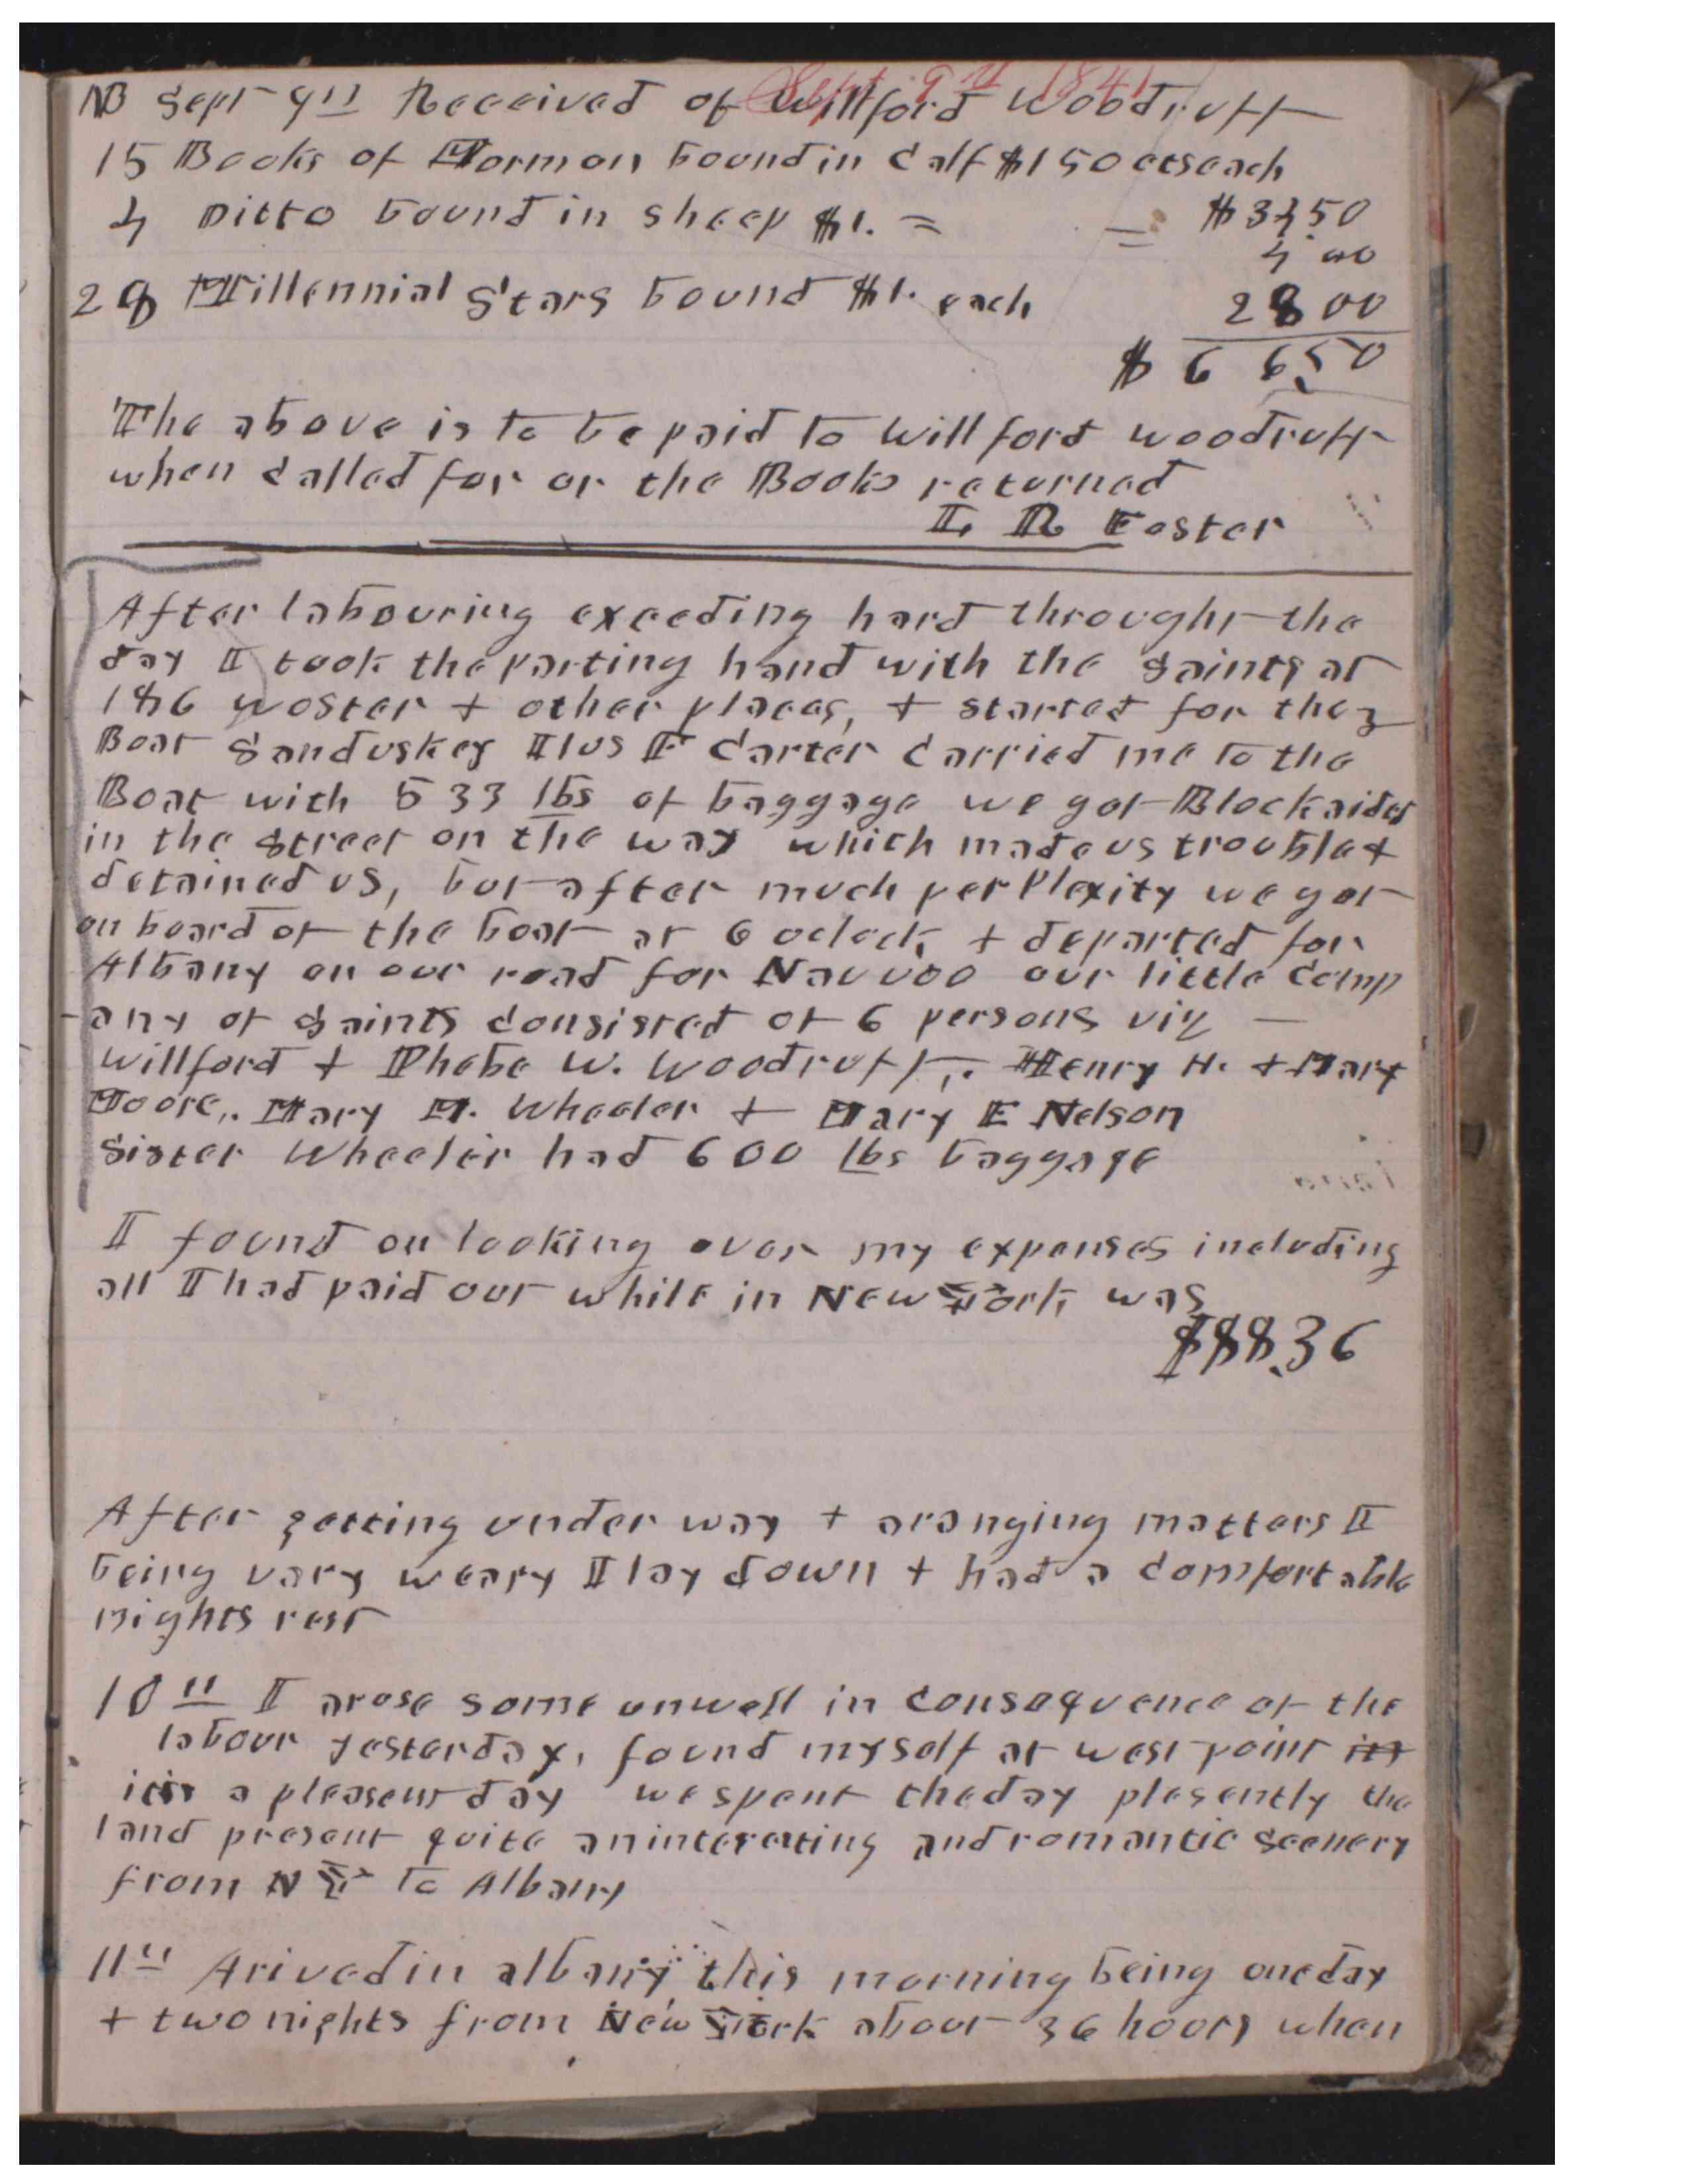 Sept. 9th 1841
NB Sept 9th Received of Willford Woodruff
15 Books of Mormon bound in Calf $150 cts each
4 Ditto bound in sheep $1. = = $3450
4 00
28 Millennial Stars bound $1. each 2800
$6650
The above is to be paid to Willford Woodruff
when Called for or the Books returned
L R Foster
After labouring exceeding hard through the
day I took the parting hand with the Saints at
186 Woster + other places, + started for the
Boat Sanduskey Ilus F Carter Carried me to the
Boat with 533 lbs of baggage we got Blockaided
in the street on the way which made us trouble +
detained us, but after much perPlexity we got
on board of the boat at 6 oclock + departed for
Albany on our road for Nauvoo our little Comp
-any of Saints Consisted of 6 persons viz —
Willford + Phebe W. Woodruff,. Henry H. + Mary
Moore,. Mary M. Wheeler + Mary E Nelson
Sister Wheeler had 600 lbs baggage
I found on looking over my expenses including
all I had paid out while in New York was
$88.36
After getting under way + aranging matters I
being vary weary I lay down + had a Comfortable
nights rest
10th I arose some unwell in Consequence of the
labour yesterday, found myself at west point
it is a pleasent day we spent the day plesently the
land present quite an interesting and romantic Scenery
from NY to Albany
11th Arived in albany this morning being one day
+ two nights from New York about 36 hours when